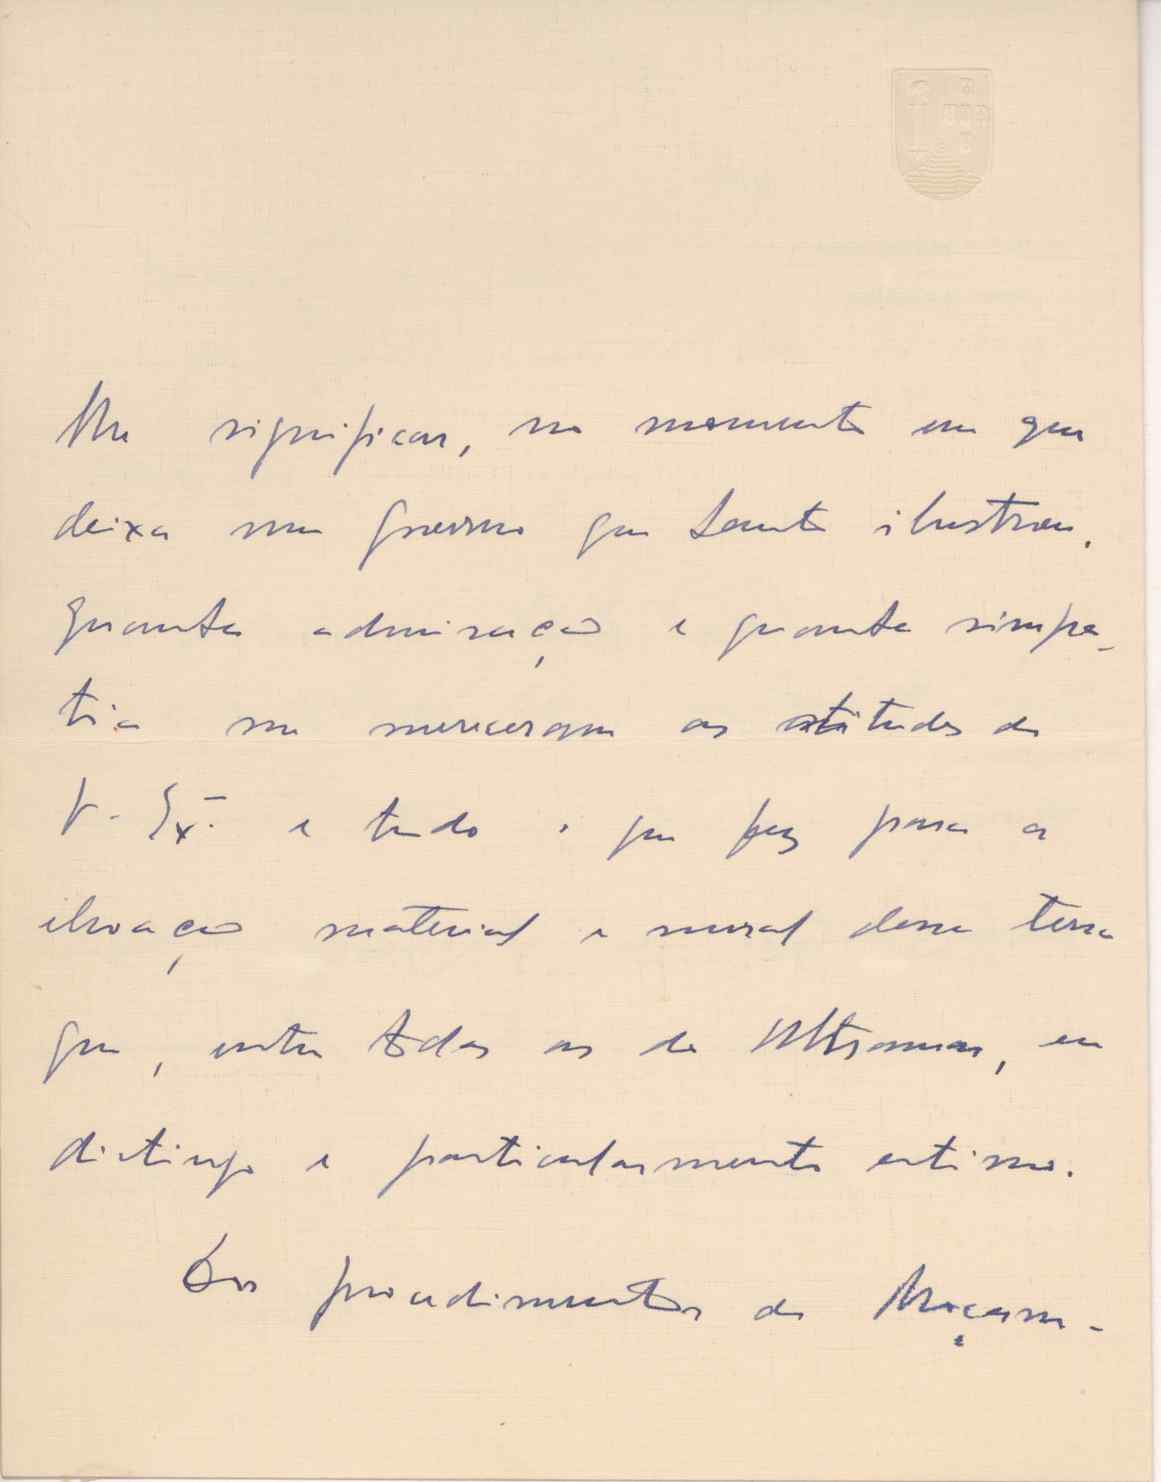 lhe significar, no momento em que
deixa um Governo que tanto ilustrou,
quanta admiração e quanta simpa-
tia me mereceram as atitudes de
V. Exª. e tudo o que fez para a
elevação material e moral dessa terra
que, entre todas as do Ultramar, eu
distingo e particularmente estimo.
Os procedimentos de Moçam-